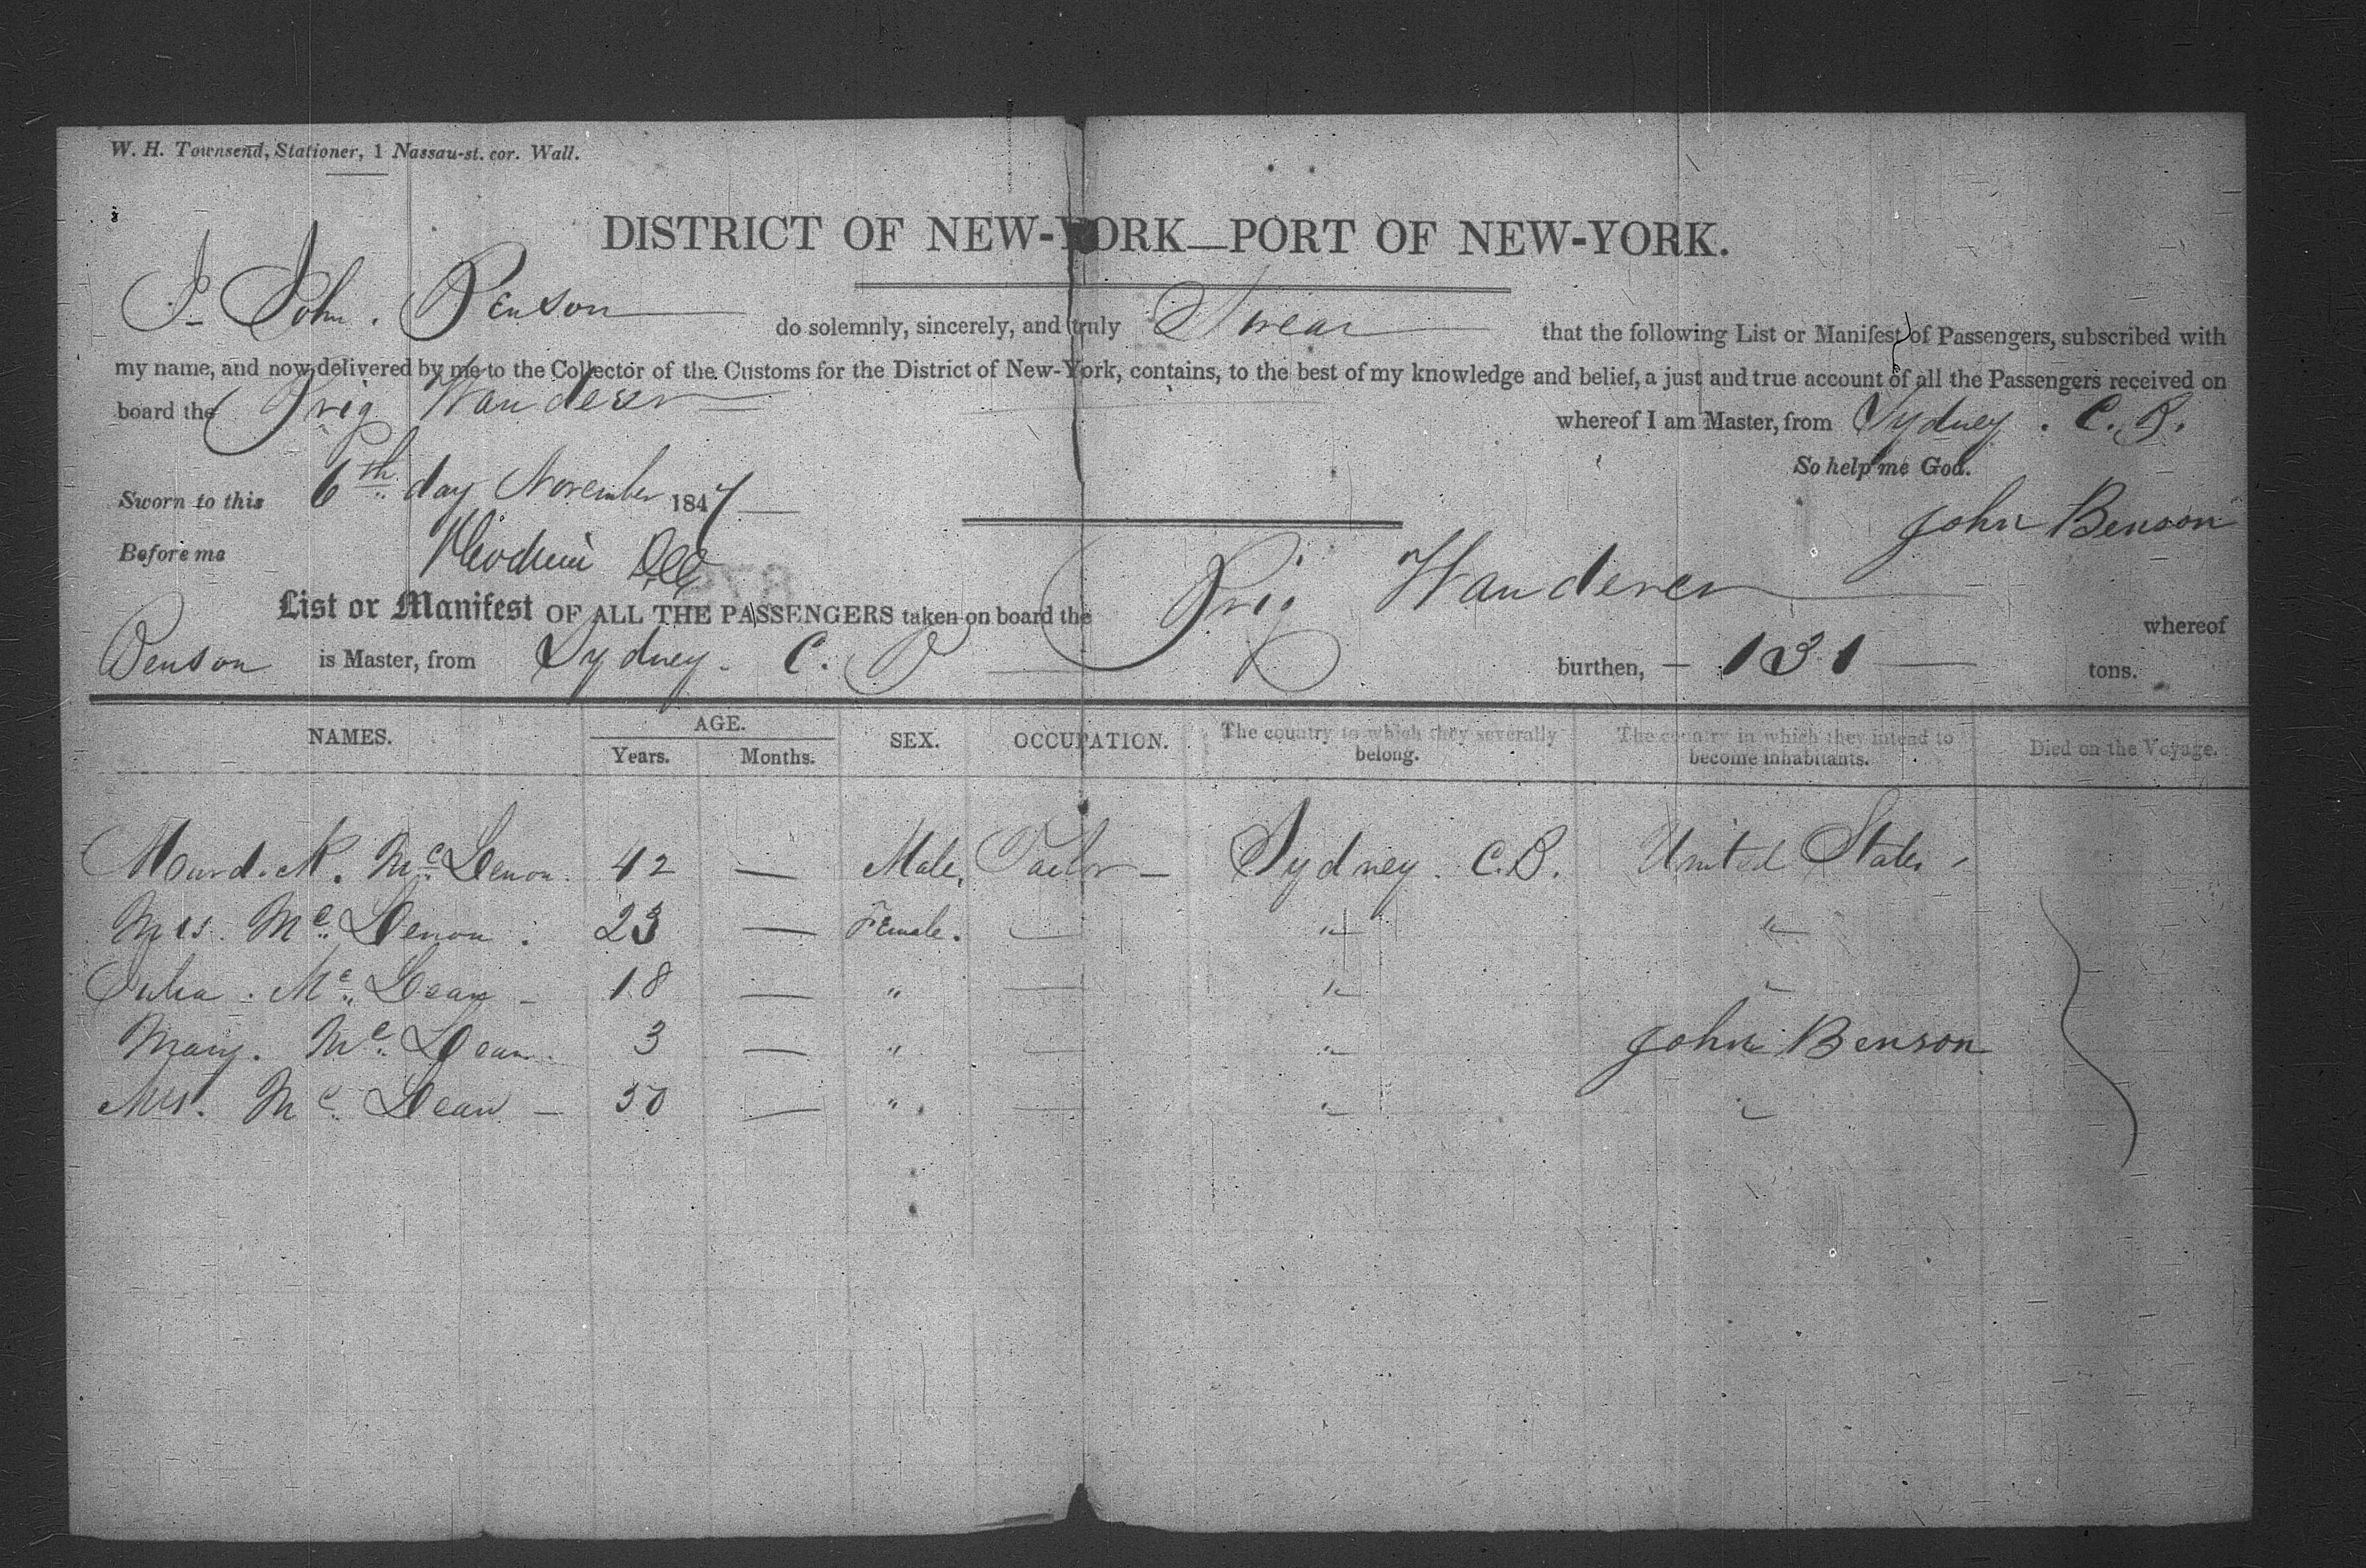 W. H. Townsend, Stationer, 1 Nassau-st. cor. Wall.
DISTRICT OF NEW-YORK—PORT OF NEW-YORK.
I John. Benson do solemnly, sincerely, and truly Swear that the following List or Manifest of Passengers, subscribed with
my name, and now delivered by me to the Collector of the Customs for the District of New-York, contains, to the best of my knowledge and belief, a just and true account of all the Passengers received on
board the Brig Wanderer whereof I am Master, from Sydney. C. B.
So help me God.
Sworn to this 6th day November 1847
John Benson
Before me
List or Manifest OF ALL THE PASSENGERS taken on board the Brig Wanderer whereof
Benson is Master, from Sydney. C. B burthen, — 131 — tons.
NAMES. AGE. SEX. OCCUPATION. The country to which they severally belong. The country in which they intend to become inhabitants. Died on the Voyage.
Years. Months.
Mc Lenon. 42 — Male, Tailor — Sydney. C.B. United States
Mrs. Mc Lenon. 23 — Female. — " "
Julia. Mc Lean — 18 — " — " "
Mary. Mc Lean. 3 — " — " John Benson
Mrs. Mc Lean — 50 — " — " "